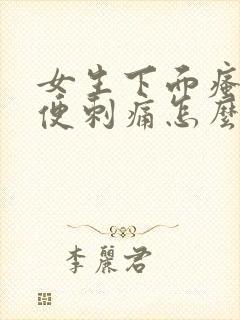 女生下面瘙
便刺痛怎麼
李麗君